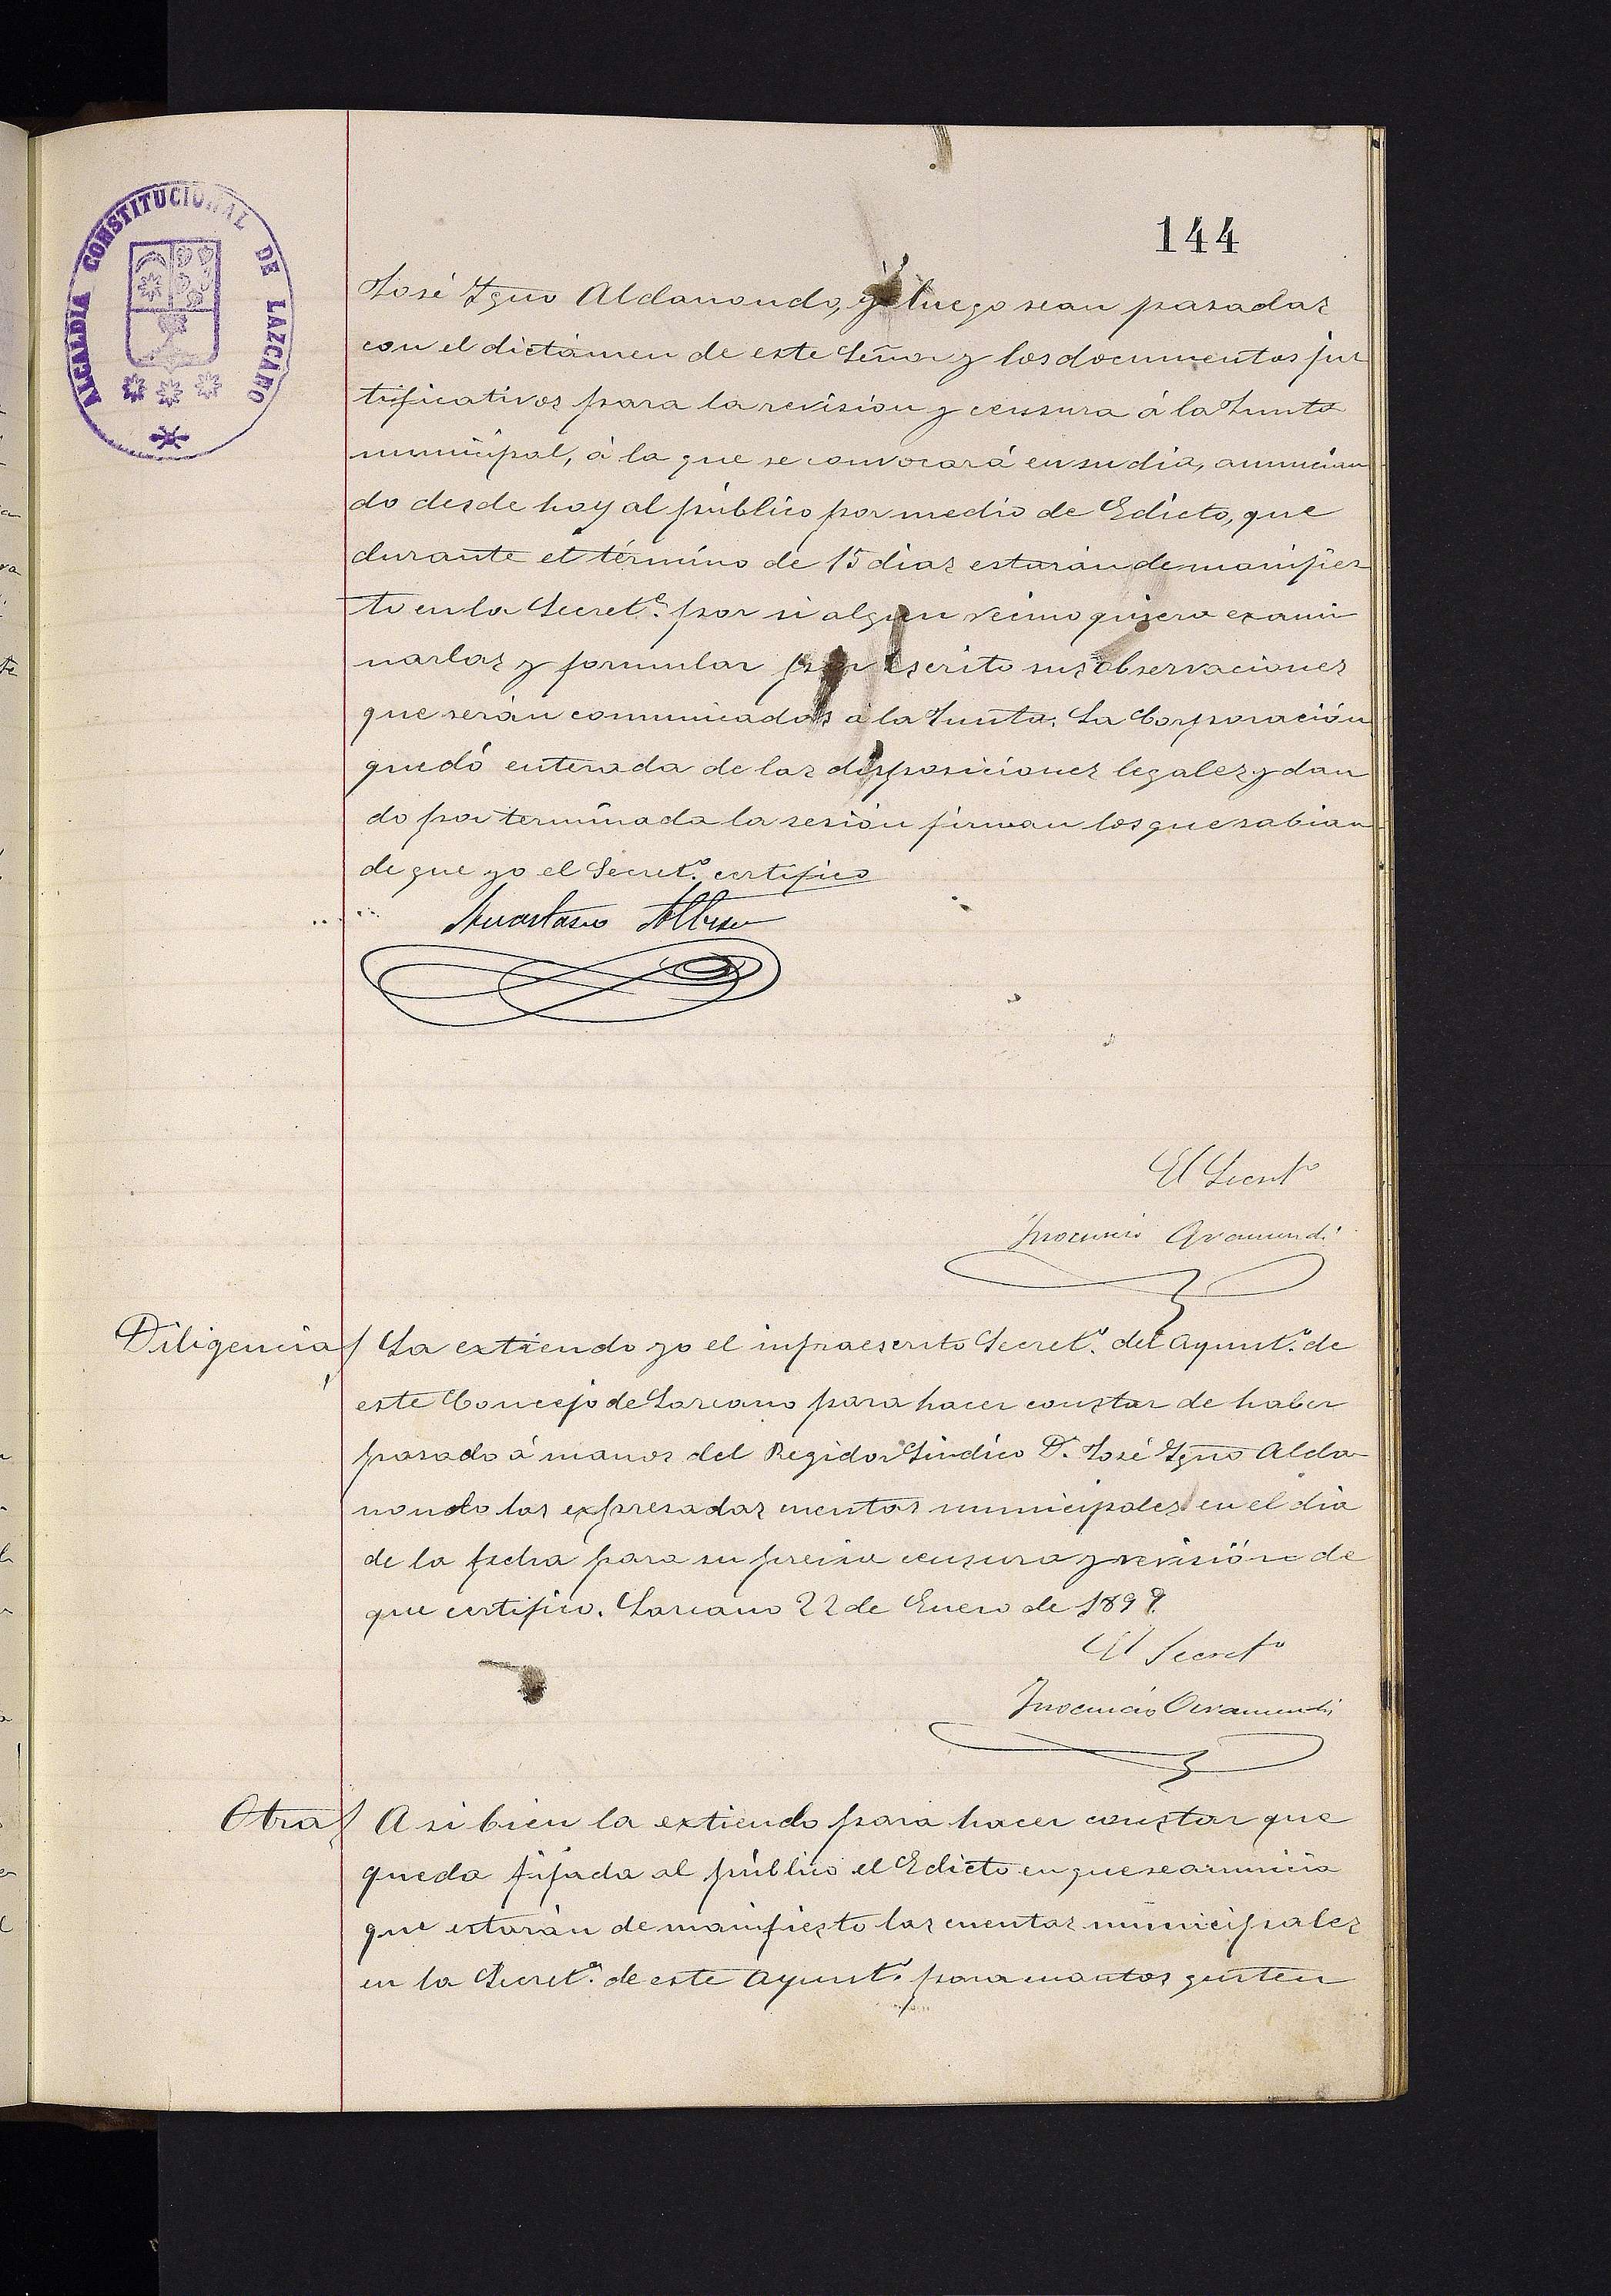 ALCALDIA CONSTITUCIONAL DE LAZCANO
144
José Ygno Aldanondo, y luego sean pasadas
con el dictámen de este Señor y los documentos jus
tificativos para la revisión y censura á la Junta
municipal, á la que se convocará en su dia, anuncian
do desde hoy al público por medio de Edicto, que
durante el término de 15 dias estarán de manifies
to en la Secret.ª por si algun vecino quisiera exami
narlas y formular por escrito sus observaciones
que serán comunicadas á la Junta. La Corporación
quedó enterada de las disposiciones legales y dan
do por terminada la sesión firman los que sabian
de que yo el Secret.º certifico
Anastasio Albisu
El Secretº
Inocencio Oyamundi
Diligencia La extiendo yo el infraescrito Secret.º del Ayunt.º de
este Concejo de Lazcano para hacer constar de haber
pasado á manos del Regidor Sindico D. José Ygno Alda
nondo las expresadas cuentas municipales en el dia
de la fecha para su previa censura y revisión de
que certifico. Lazcano 22 de Enero de 1899.
El Secretº
Inocencio
Otra A si bien la extiendo para hacer constar que
queda fijada al público el Edicto en que se anuncia
que estarán de manifiesto las cuentas municipales
en la Secret.ª de este Ayunt.º para cuantos gusten